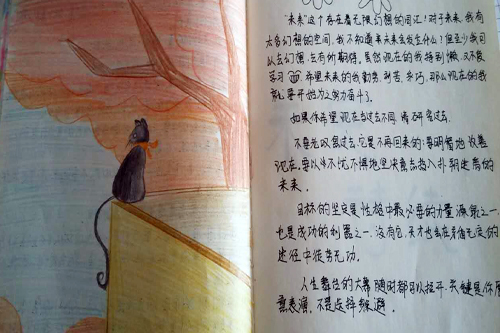 “未来”这个存在着无限幻想的词汇！对于未来，我有
太多幻想的空间，我不知道未来会发生什么？但至少我可
以去幻想，去有所期待。虽然现在的我特别懒，又不爱
学习，希望未来的我勤劳、刻苦、乖巧，那么现在的我
就要开始为之努力奋斗了。
如果你希望现在与过去不同，请研究过去。
不要老叹息过去，它是不再回来的；要明智地改善
现在。要以不忧不惧的坚决意志投入扑朔迷离的
未来。
目标的坚定是性格中最必要的力量源泉之一，
也是成功的利器之一。没有它，天才也会在矛盾无定的
迷径中徒劳无功。
人生舞台的大幕随时都可以拉开，关键是你愿
意表演，不是选择躲避。